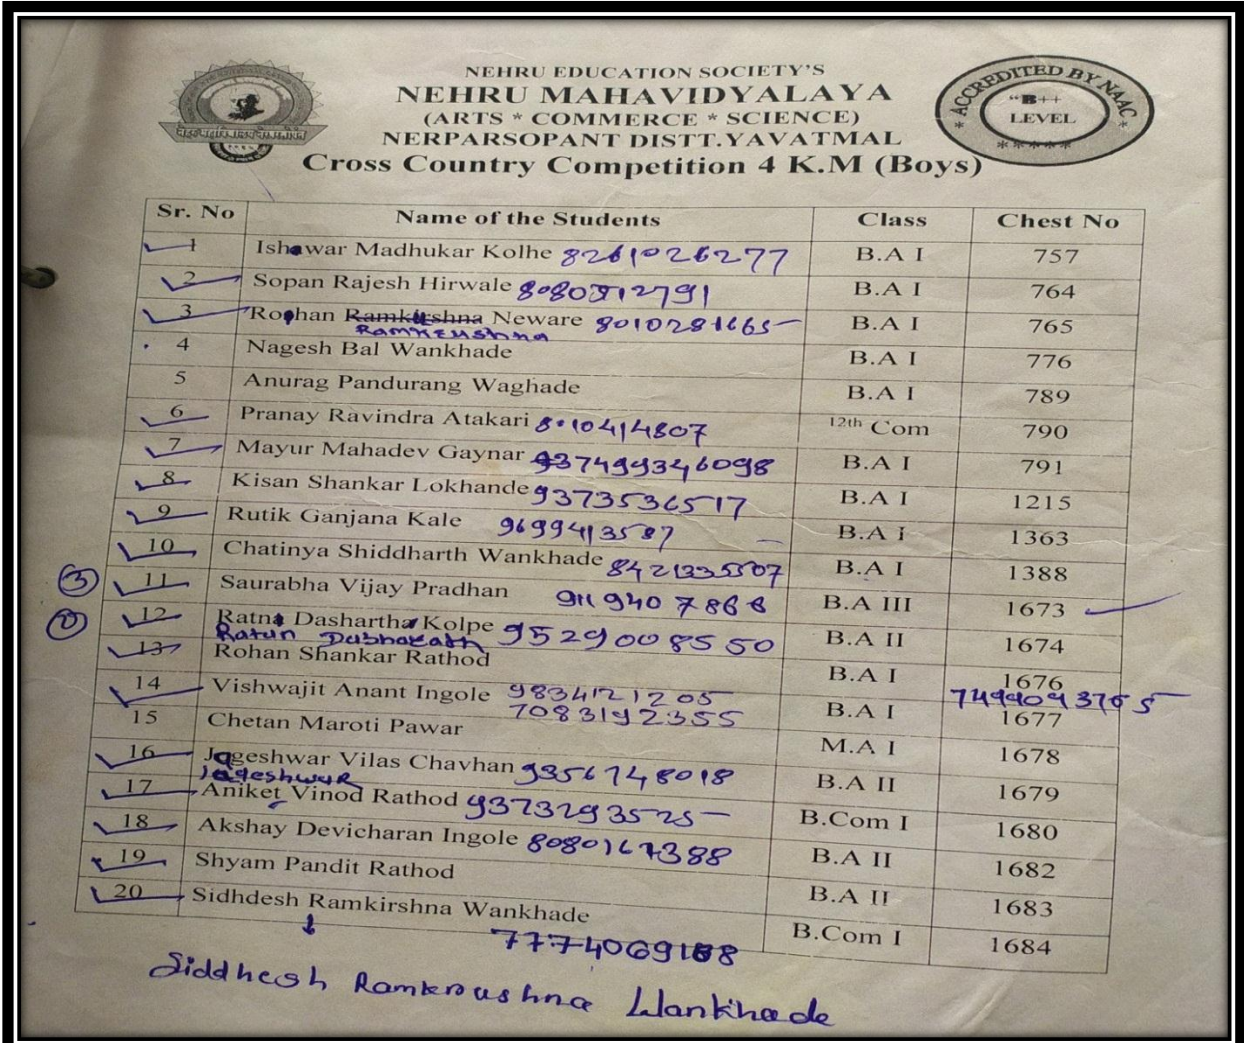 NEHRU EDUCATION SOCIETY'S
NEHRU MAHAVIDYALAYA
(ARTS * COMMERCE * SCIENCE)
NERPARSOPANT DISTT.YAVATMAL
Cross Country Competition 4 K.M (Boys)
* ACCREDITED BY NAAC *
"B++
LEVEL
*****
Sr. No Name of the Students Class Chest No
1 Ishawar Madhukar Kolhe 8261026277 B.A I 757
2 Sopan Rajesh Hirwale B.A I 764
3 Roshan Ramkirshna Neware 8010281665 B.A I 765
Ramkrushna
4 Nagesh Bal Wankhade B.A I 776
5 Anurag Pandurang Waghade B.A I 789
6 Pranay Ravindra Atakari 8010414807 12th Com 790
7 Mayur Mahadev Gaynar B.A I 791
8 Kisan Shankar Lokhande 9373536517 B.A I 1215
9 Rutik Ganjana Kale 9699413587 B.A I 1363
10 Chatinya Shiddharth Wankhade 8421335507 B.A I 1388
3 11 Saurabha Vijay Pradhan B.A III 1673
12 Ratna Dashartha Kolpe 9529008550 B.A II 1674
13 Rohan Shankar Rathod B.A I 1676
14 Vishwajit Anant Ingole 9834121205 B.A I 1677
7083192355
15 Chetan Maroti Pawar M.A I 1678
16 Jageshwar Vilas Chavhan 9356748018 B.A II 1679
Jageshwar
17 Aniket Vinod Rathod 9373293525 B.Com I 1680
18 Akshay Devicharan Ingole 8080167388 B.A II 1682
19 Shyam Pandit Rathod B.A II 1683
20 Sidhdesh Ramkirshna Wankhade B.Com I 1684
Siddhesh Ramkrushna Wankhade